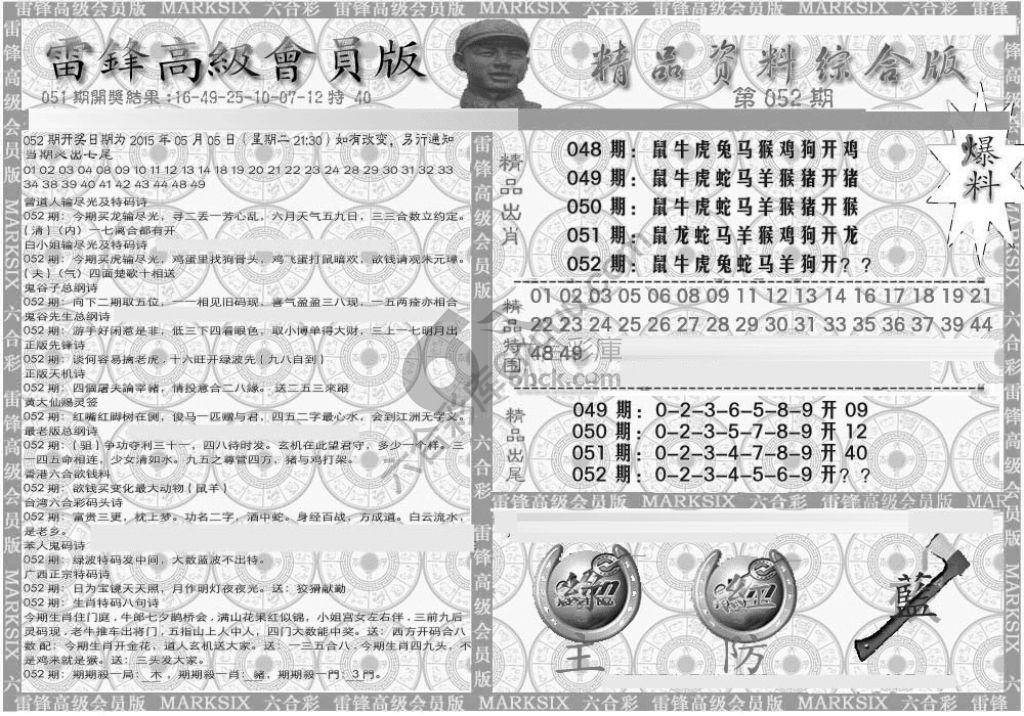 雷锋高级会员版 MARKSIX 六合彩 雷锋高级会员版 MARKSIX 六合彩 雷锋高级会员版 MARKSIX 六合彩 雷锋
雷鋒高級會員版
精品资料综合版
051期開獎結果:16-49-25-10-07-12特 40
第 052 期
052期开奖日期为 2015 年 05 月 05 日（星期二 21:30）如有改变，另行通知
当期火出七尾
01 02 03 04 08 09 10 11 12 13 14 18 19 20 21 22 23 24 28 29 30 31 32 33
34 38 39 40 41 42 43 44 48 49
曾道人输尽光及特码诗
052期：今期买龙输尽光，寻二丢一芳心乱，六月天气五九日，三三合数立约定。
{清}（内）一七离合都有开
白小姐输尽光及特码诗
052期：今期买虎输尽光，鸡蛋里找狗骨头，鸡飞蛋打鼠暗欢，欲钱请观朱元璋。
{夫}（气）四面楚歌十相送
鬼谷子总纲诗
052期：向下二期取五位，一一相见旧码现，喜气盈盈三八现，一五两疼亦相合
鬼谷先生总纲诗
052期：游手好闲惹是非，低三下四看眼色，取小博单得大财，三上一七明月出
正版先锋诗
052期：谈何容易擒老虎．十六旺开绿波先{九八自到}
正版天机诗
052期：四個屠夫論宰豬，情投意合二八緣。送二五三來跟
黄大仙赐灵签
052期：红嘴红脚树在侧，俊马一匹赠与君，四五二字最心水，会到江洲无学义。
最老版总纲诗
052期：{驵}争功夺利三十一，四八待时发。玄机在此望君守，多少一个样。三
一四五命相连，少女清如水。九五之尊管四方，猪与鸡打架。
香港六合欲钱料
052期：欲钱买变化最大动物{鼠羊}
台湾六合彩码头诗
052期：富贵三更，枕上梦。功名二字，酒中蛇。身经百战，方成道。白云流水，
是老乡。
苯人鬼码诗
052期：绿波特码发中间，大数蓝波不出特。
广西正宗特码诗
052期：日为宝镜天天照，月作明灯夜夜光。送：狡猾献勤
052期：生肖特码八句诗
今期生肖住门庭．牛郎七夕鹊桥会．满山花果红似锦，小姐宫女左右伴．三前九后
灵码现．老牛推车出将门．五指山上人中人，四门大数能中奖。送：西方开码合八
数 配：今期生肖开金花，道人玄机送大家。送：一三五合八．今期生肖四九头，不
是鸡来就是猴。送：三头发大家。
052期：期期殺一局：木，期期殺一肖：豬，期期殺一門：3 門。
精品出肖
048 期：鼠牛虎兔马猴鸡狗开鸡
049 期：鼠牛虎蛇马羊猴猪开猪
050 期：鼠牛虎蛇马羊猴猪开猴
051 期：鼠龙蛇马羊猴鸡狗开龙
052 期：鼠牛虎兔蛇马羊狗开? ?
爆料
精品特围
01 02 03 05 06 08 09 11 12 13 14 16 18 19 21
22 23 24 25 26 27 28 29 30 31 33 35 36 37 39 44
48 49
精品出尾
049 期：0-2-3-6-5-8-9 开 09
050 期：0-2-3-5-7-8-9 开 12
051 期：0-2-3-4-5-8-9 开 40
052 期：0-2-3-4-5-6-9 开? ?
雷锋高级会员版 MARKSIX 六合彩 雷锋高级会员版 MARKSIX
綠 紅 藍
主 防
雷锋高级会员版 MARKSIX 六合彩 雷锋高级会员版 MARKSIX 六合彩 雷锋高级会员版 MARKSIX 六合彩 雷锋